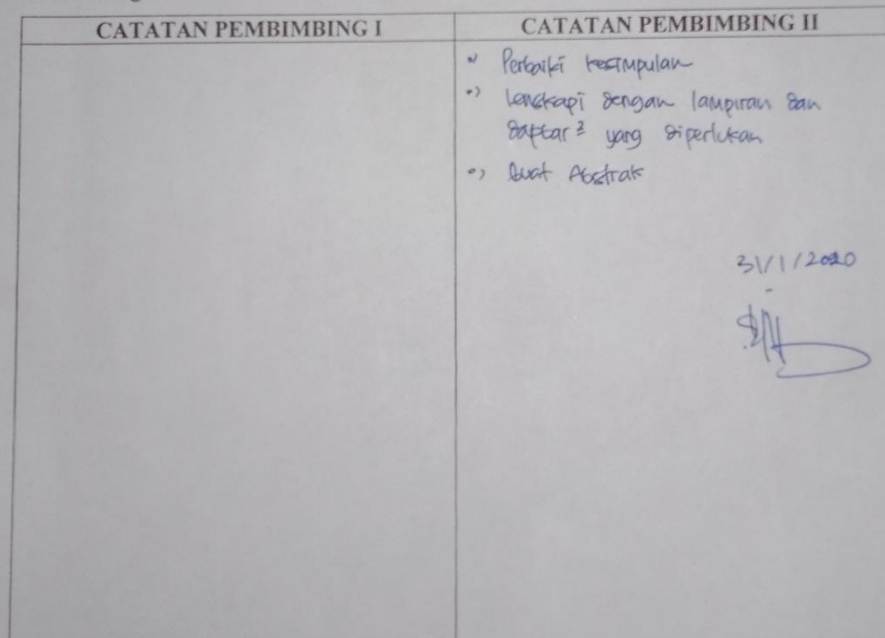 CATATAN PEMBIMBING I
CATATAN PEMBIMBING II
•) Perbaiki kesimpulan
•) Lengkapi dengan lampiran dan
daftar² yang diperlukan
•) Buat Abstrak
31/1/2020